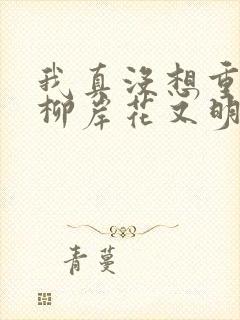 我真没想重
柳岸花又明
青蔓